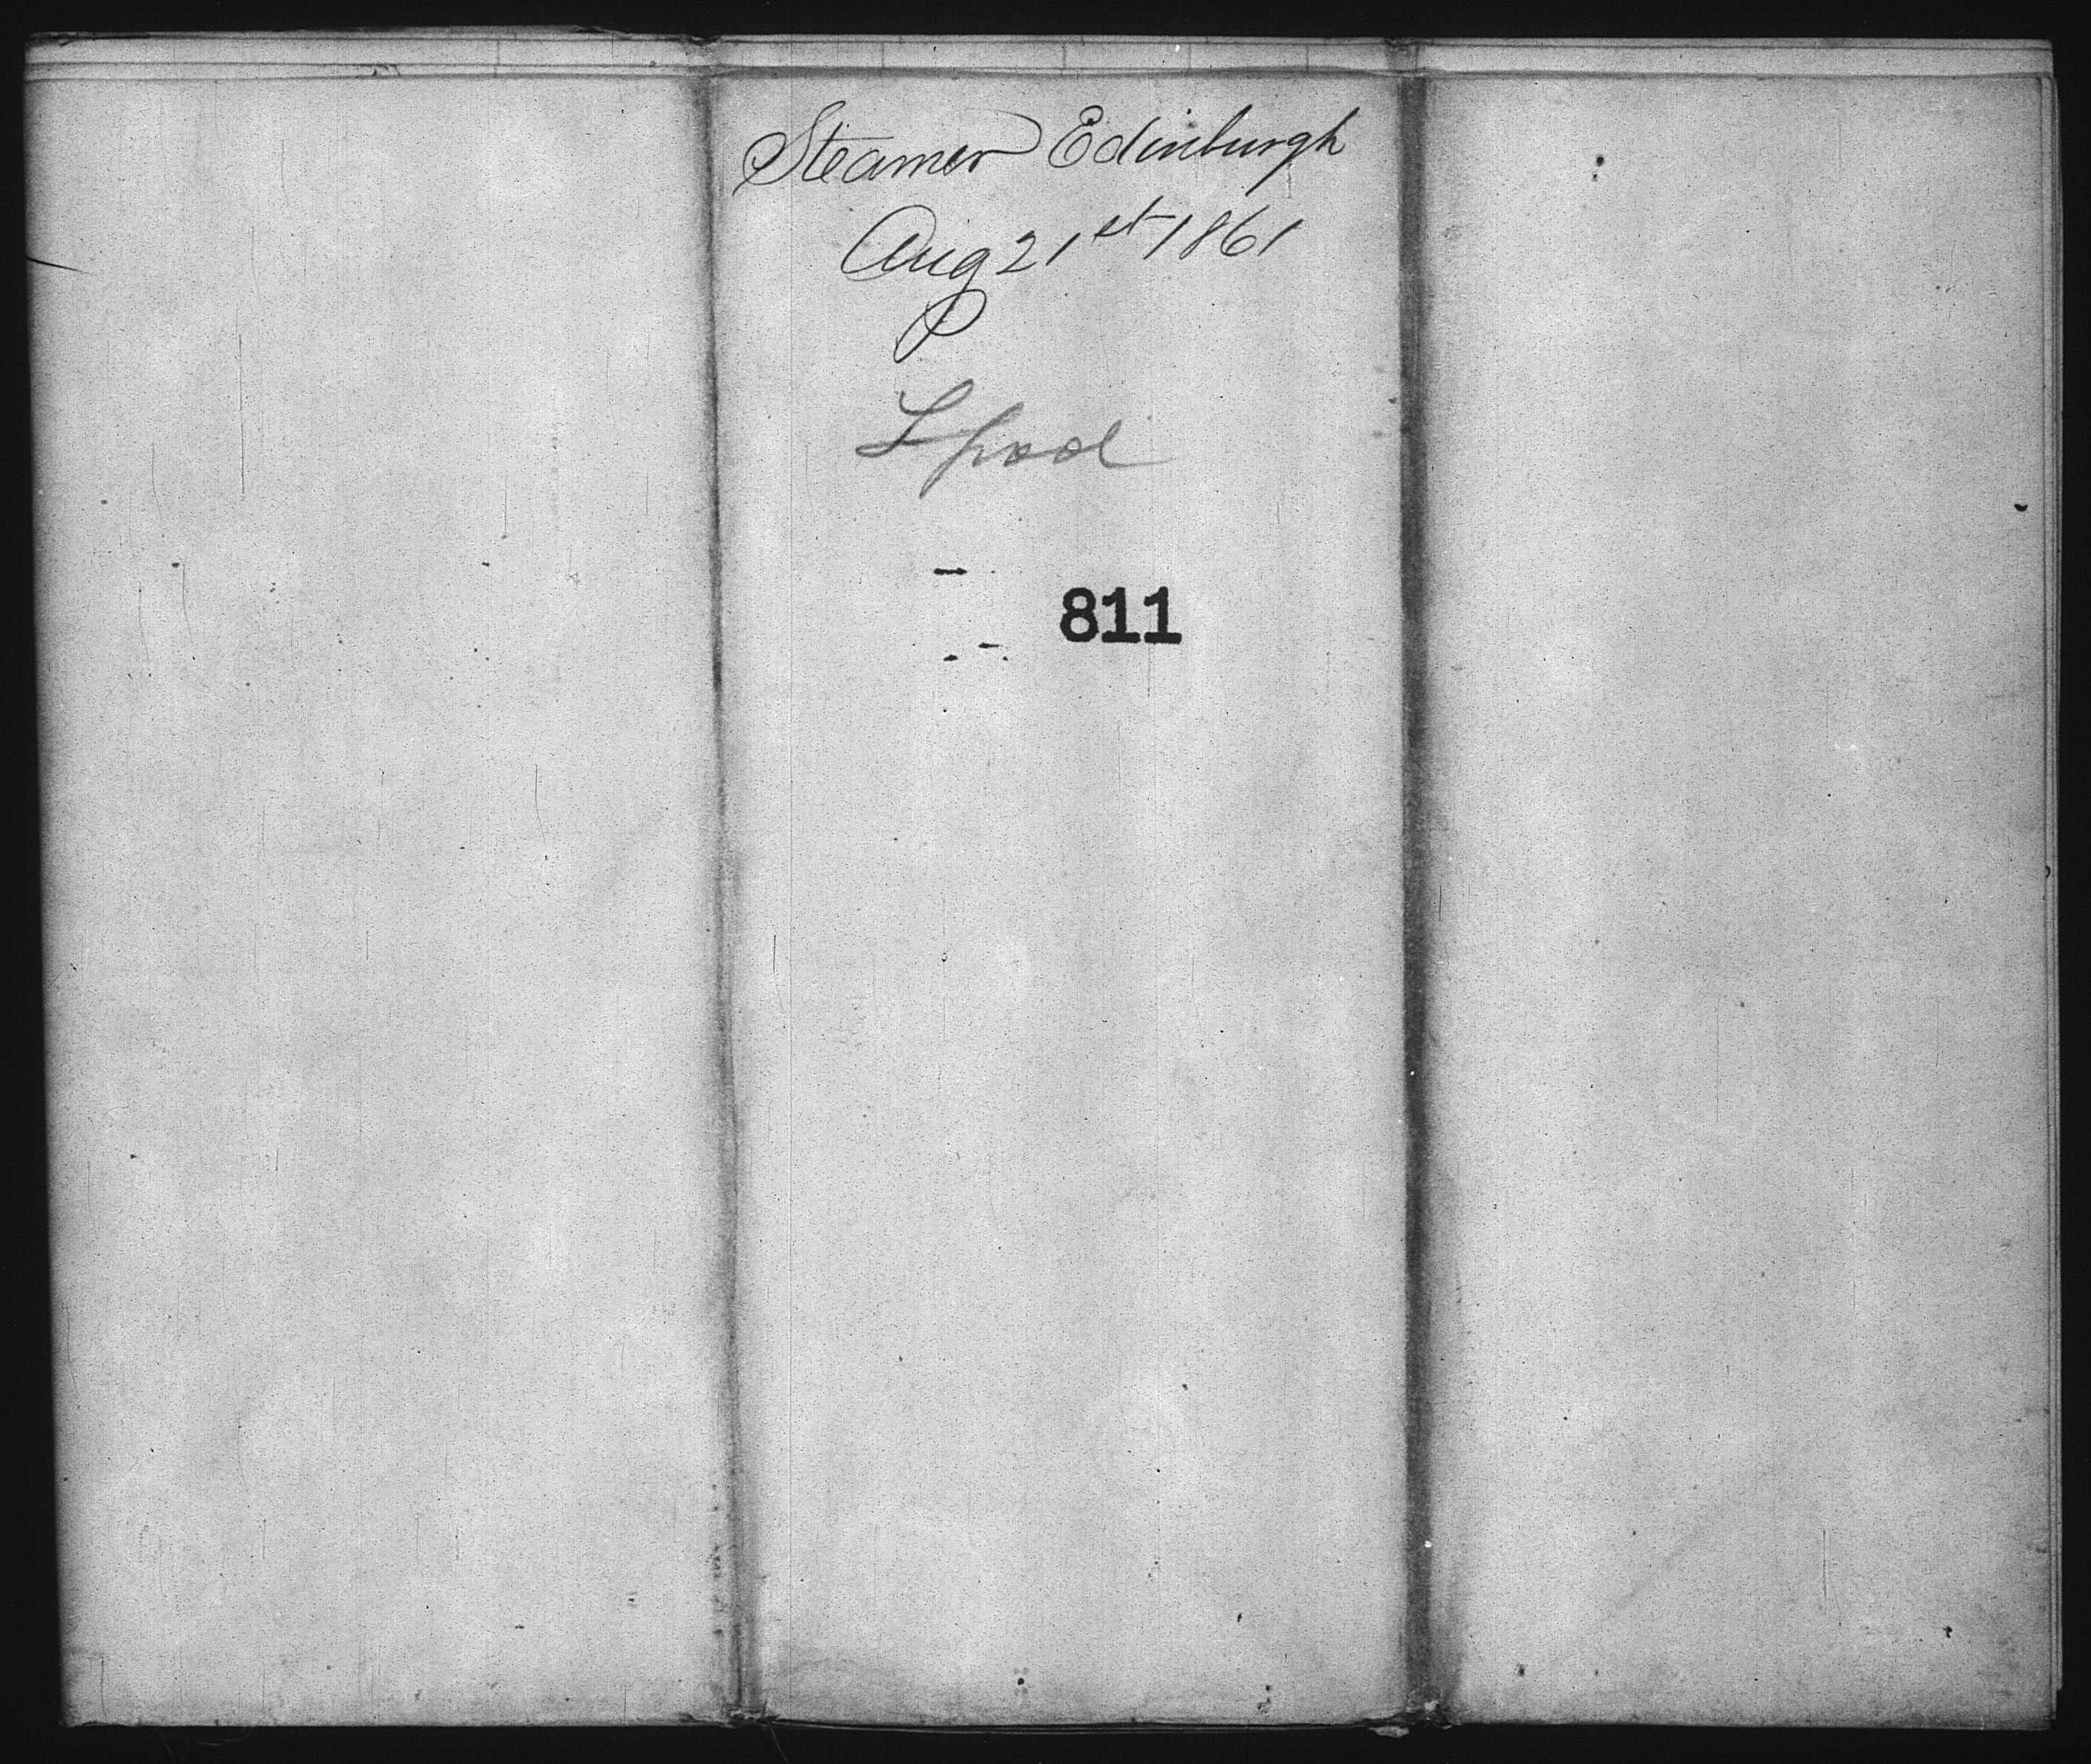 Steamer Edinburgh
Aug 21st 1861
P
Lpool
811